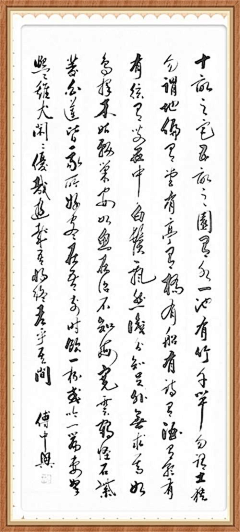 十畝之宅五畝之園有水一池有竹千竿勿謂土狹
勿謂地偏有堂有亭有橋有船有詩有酒有歌
有弦有叟在中白鬚飄然識分知足外無求焉如
鳥擇木姑務巢安如魚在沼不知海寬靈鶴怪石紫
菱白蓮皆吾所好盡在吾前時飲一杯或吟一篇妻孥
熙熙雞犬閑閑優哉游哉吾將終老乎其間
傅中興